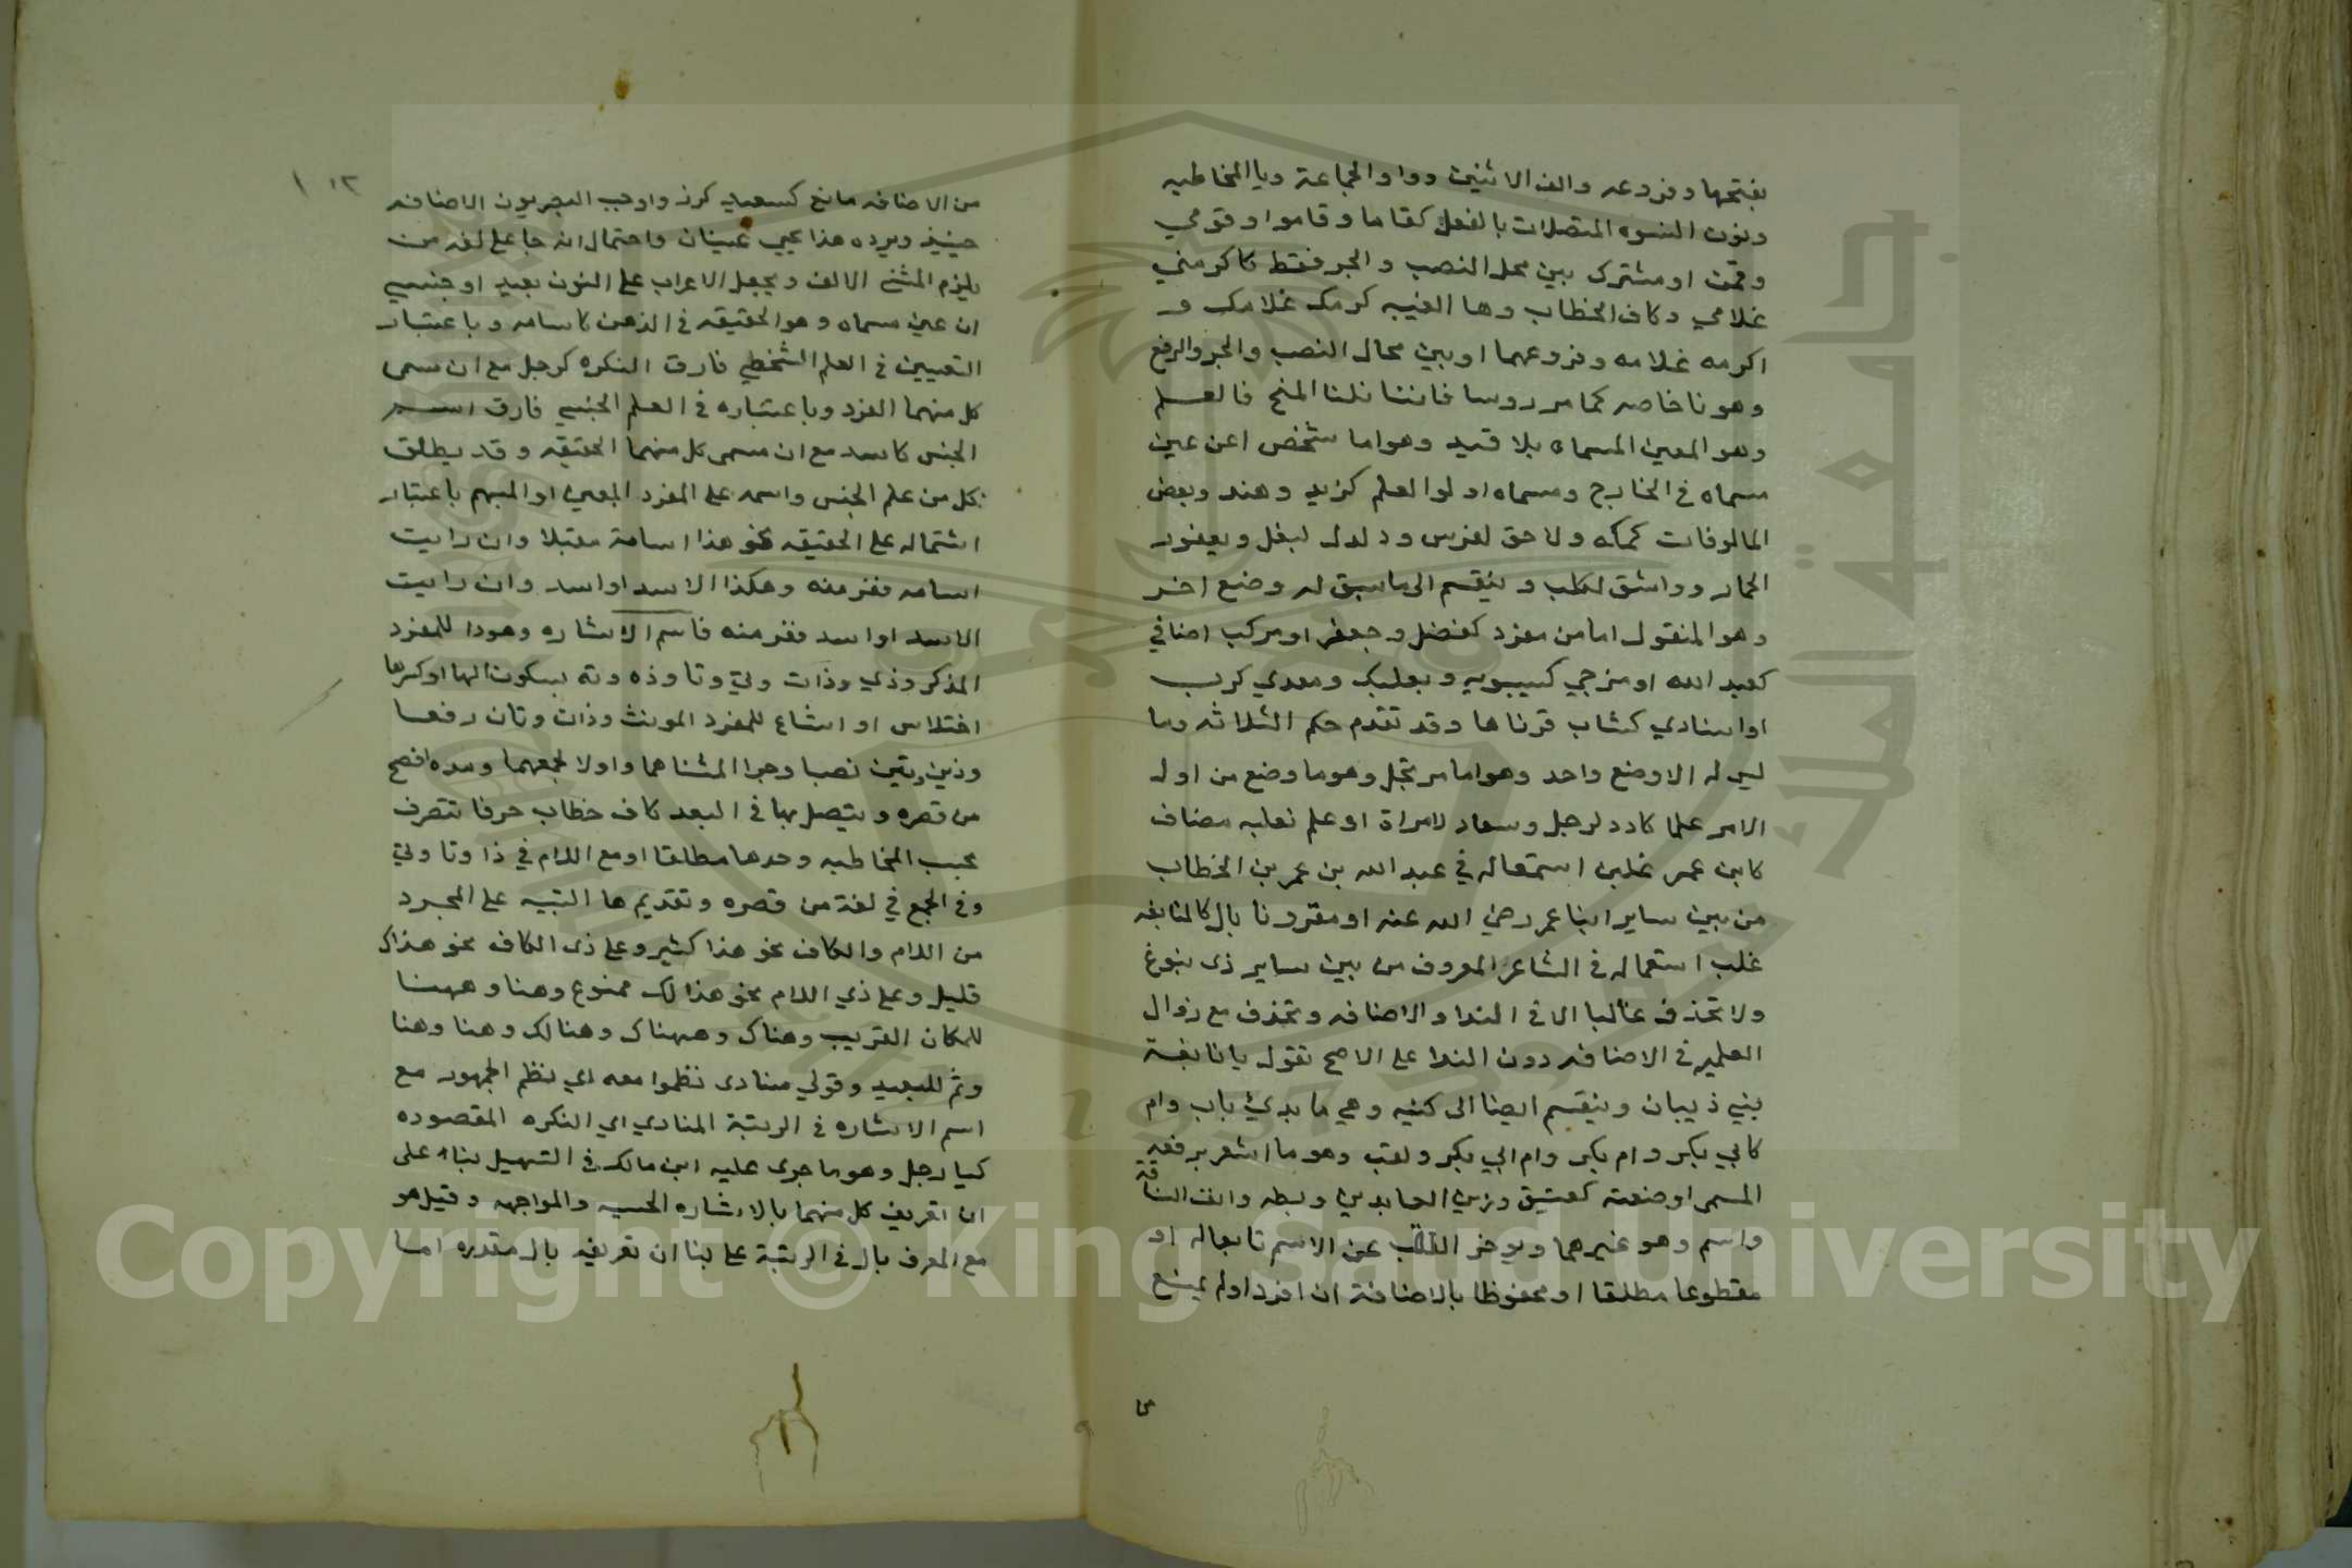 بفتحها وفروعه والف الاثنين وواو الجماعة ويا المخاطبه
ونون النسوه المتصلات بالفعل كقاما وقاموا وقومي
وقمن او مشترك بين محل النصب والجر فقط كاكرمني
غلامي وكاف الخطاب وها الغيبه كرمك غلامك و
اكرمه غلامه وفروعهما او بين محال النصب والجر والرفع
وهو نا خاصه كما مر روسا فاننا نلنا المنح فالعلم
وهو المعين المسماه بلا قيد وهو اما شخص اعن عين
مسماه في الخارج ومسماه اولوا العلم كزيد وهند وبعض
المالوفات كمكه ولاحق لفرس ودلدل لبغل ويعفور
الحمار وواشق لكلب وينقسم الى ما سبق له وضع اخر
وهو المنقول اما من مفرد كفضل وجعفر او مركب اضافي
كعبد الله او مزجي كسيبويه وبعلبك ومعدي كرب
او اسنادي كشاب قرناها وقد تقدم حكم الثلاثه وما
ليس له الا وضع واحد وهو اما مرتجل وهو ما وضع من اول
الامر علما كادد لرجل وسعاد لامراة او علم نعلبه مضاف
كابن عمر غلبن استعماله في عبد الله بن عمر بن الخطاب
من بين ساير ابنا عمر رضي الله عنه او مقرونا بال كالنابغه
غلب استعماله في الشاعر المعروف من بين ساير ذى نبوغ
ولا تحذف غالبا الا في الندا والاضافه وتحذف مع زوال
العلميه في الاضافه دون الندا على الاصح تقول يا نابغة
بني ذيبان وينقسم ايضا الى كنيه وهي ما بدي باب وام
كابي بكر وام بكر وام ابي بكر ولقب وهو ما اشعر برفعه
المسمى او ضعته كعتيق وزين العابدين وبطه وانف الناقة
واسم وهو غيرهما ويوخر اللقب عن الاسم تابعا له او
مقطوعا مطلقا او محفوظا بالاضافة ان افردا ولم يمنع
من الاضافه مانع كسعيد كرز واوجب البصريون الاضافه
حينيذ ويرده هذا يحيي عينان واحتمال انه جا على لغه من
يلزم المثنى الالف ويجعل الاعراب على النون بعيد او جنسي
ان عين مسماه وهو الحقيقه في الذهن كاسامه وباعتبار
التعيين في العلم الشخطي فارق النكره كرجل مع ان مسمى
كل منهما الفرد وباعتباره في العلم الجنسي فارق اسم
الجنس كاسد مع ان مسمى كل منهما الحقيقه وقد يطلق
كل من علم الجنس واسمه على المفرد المعين او المبهم باعتبار
اشتماله على الحقيقه نحو هذا اسامة مقبلا وان رايت
اسامه ففر منه وهكذا الاسد او اسد وان رايت
الاسد او اسد ففر منه فاسم الاشاره وهو ذا للمفرد
المذكر وذي وذات وتي وتا وذه وته بسكون الها او كسرها
اختلاس او اشباع للمفرد المونث وذان وتان رفعا
وذين وتين نصبا وجرا المثناهما واولا لجمعهما ومده افصح
من قصره ويتصل بها في البعد كاف خطاب حرفا تتصرف
بحسب المخاطبه وحدها مطلقا او مع اللام في ذا وتا وتي
وفي الجمع في لغة من قصره وتقديم ها التنبيه على المجرد
من اللام والكاف نحو هذا كثير وعلى ذى الكاف نحو هذاك
قليل وعلى ذي اللام نحو هذا لك ممنوع وهنا وههنا
للمكان القريب وهناك وههناك وهنالك وهنا وهنا
وثم للبعيد وقولي منادى نظموا معه اي نظم الجمهور مع
اسم الاشاره في الرتبة المنادي اي النكره المقصوده
كيا رجل وهو ما جرى عليه ابن مالك في التسهيل بناء على
ان تعريف كل منهما بالاشاره الحسيه والمواجهه وقيل هو
مع المعرف بال في الرتبة على بنا ان تعريفه بال مقدره اما
Copyright © King Saud University